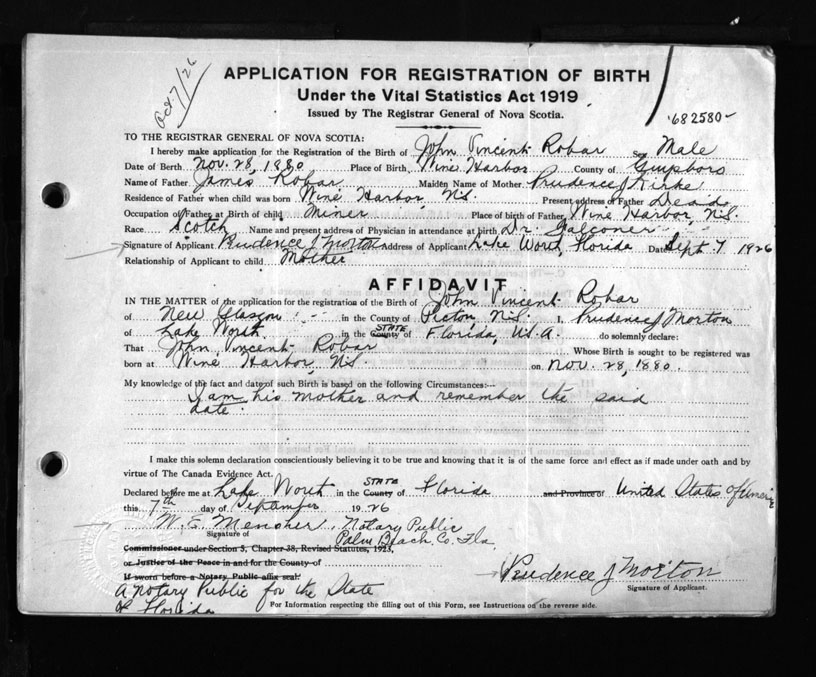 Oct. 7/26
APPLICATION FOR REGISTRATION OF BIRTH
Under the Vital Statistics Act 1919
Issued by The Registrar General of Nova Scotia.
682580
TO THE REGISTRAR GENERAL OF NOVA SCOTIA:
I hereby make application for the Registration of the Birth of John Vincent Robar Sex Male
Date of Birth Nov. 28, 1880 Place of Birth Wine Harbor County of Guysboro
Name of Father James Robar Maiden Name of Mother Prudence J Kirke
Residence of Father when child was born Wine Harbor, N.S. Present address of Father Dead
Occupation of Father at Birth of child Miner Place of birth of Father Wine Harbor, N.S.
Race Scotch Name and present address of Physician in attendance at birth Dr. Falconer
Signature of Applicant Prudence J Morton Address of Applicant Lake Worth, Florida Date Sept 7 1926
Relationship of Applicant to child Mother
AFFIDAVIT
IN THE MATTER of the application for the registration of the Birth of John Vincent Robar
of New Glasgow in the County of Picton N.S. I, Prudence J Morton
of Lake Worth in the County STATE of Florida, U.S.A. do solemnly declare:
That John Vincent Robar Whose Birth is sought to be registered was
born at Wine Harbor, N.S. on Nov. 28, 1880.
My knowledge of the fact and date of such Birth is based on the following Circumstances:—
I am his mother and remember the said
date.
I make this solemn declaration conscientiously believing it to be true and knowing that it is of the same force and effect as if made under oath and by
virtue of The Canada Evidence Act.
Declared before me at Lake Worth in the County STATE of Florida and Province of United States of America
this 7th day of September 1926
W. E. Menoher, Notary Public
Signature of
Palm Beach Co. Fla.
Commissioner under Section 5, Chapter 38, Revised Statutes, 1923,
or Justice of the Peace in and for the County of
If sworn before a Notary Public affix seal.
Prudence J Morton
Signature of Applicant.
A Notary Public for the State
of Florida
For Information respecting the filling out of this Form, see Instructions on the reverse side.